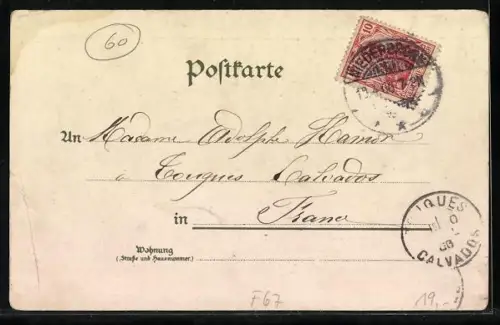 60
10
Postkarte
An Madame Adolphe Hamon
à Touques Calvados
in France
Wohnung
(Straße und Hausnummer)
TOUQUES
CALVADOS
F67
19,-